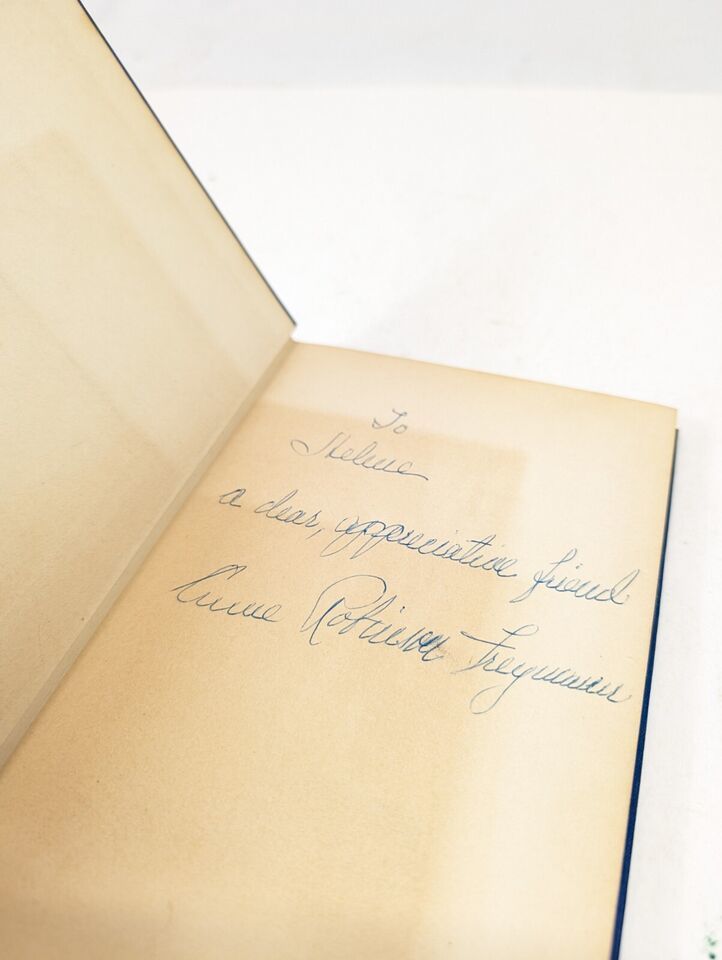 To
Helene
a dear, appreciative friend
Anne Robinson Freymann